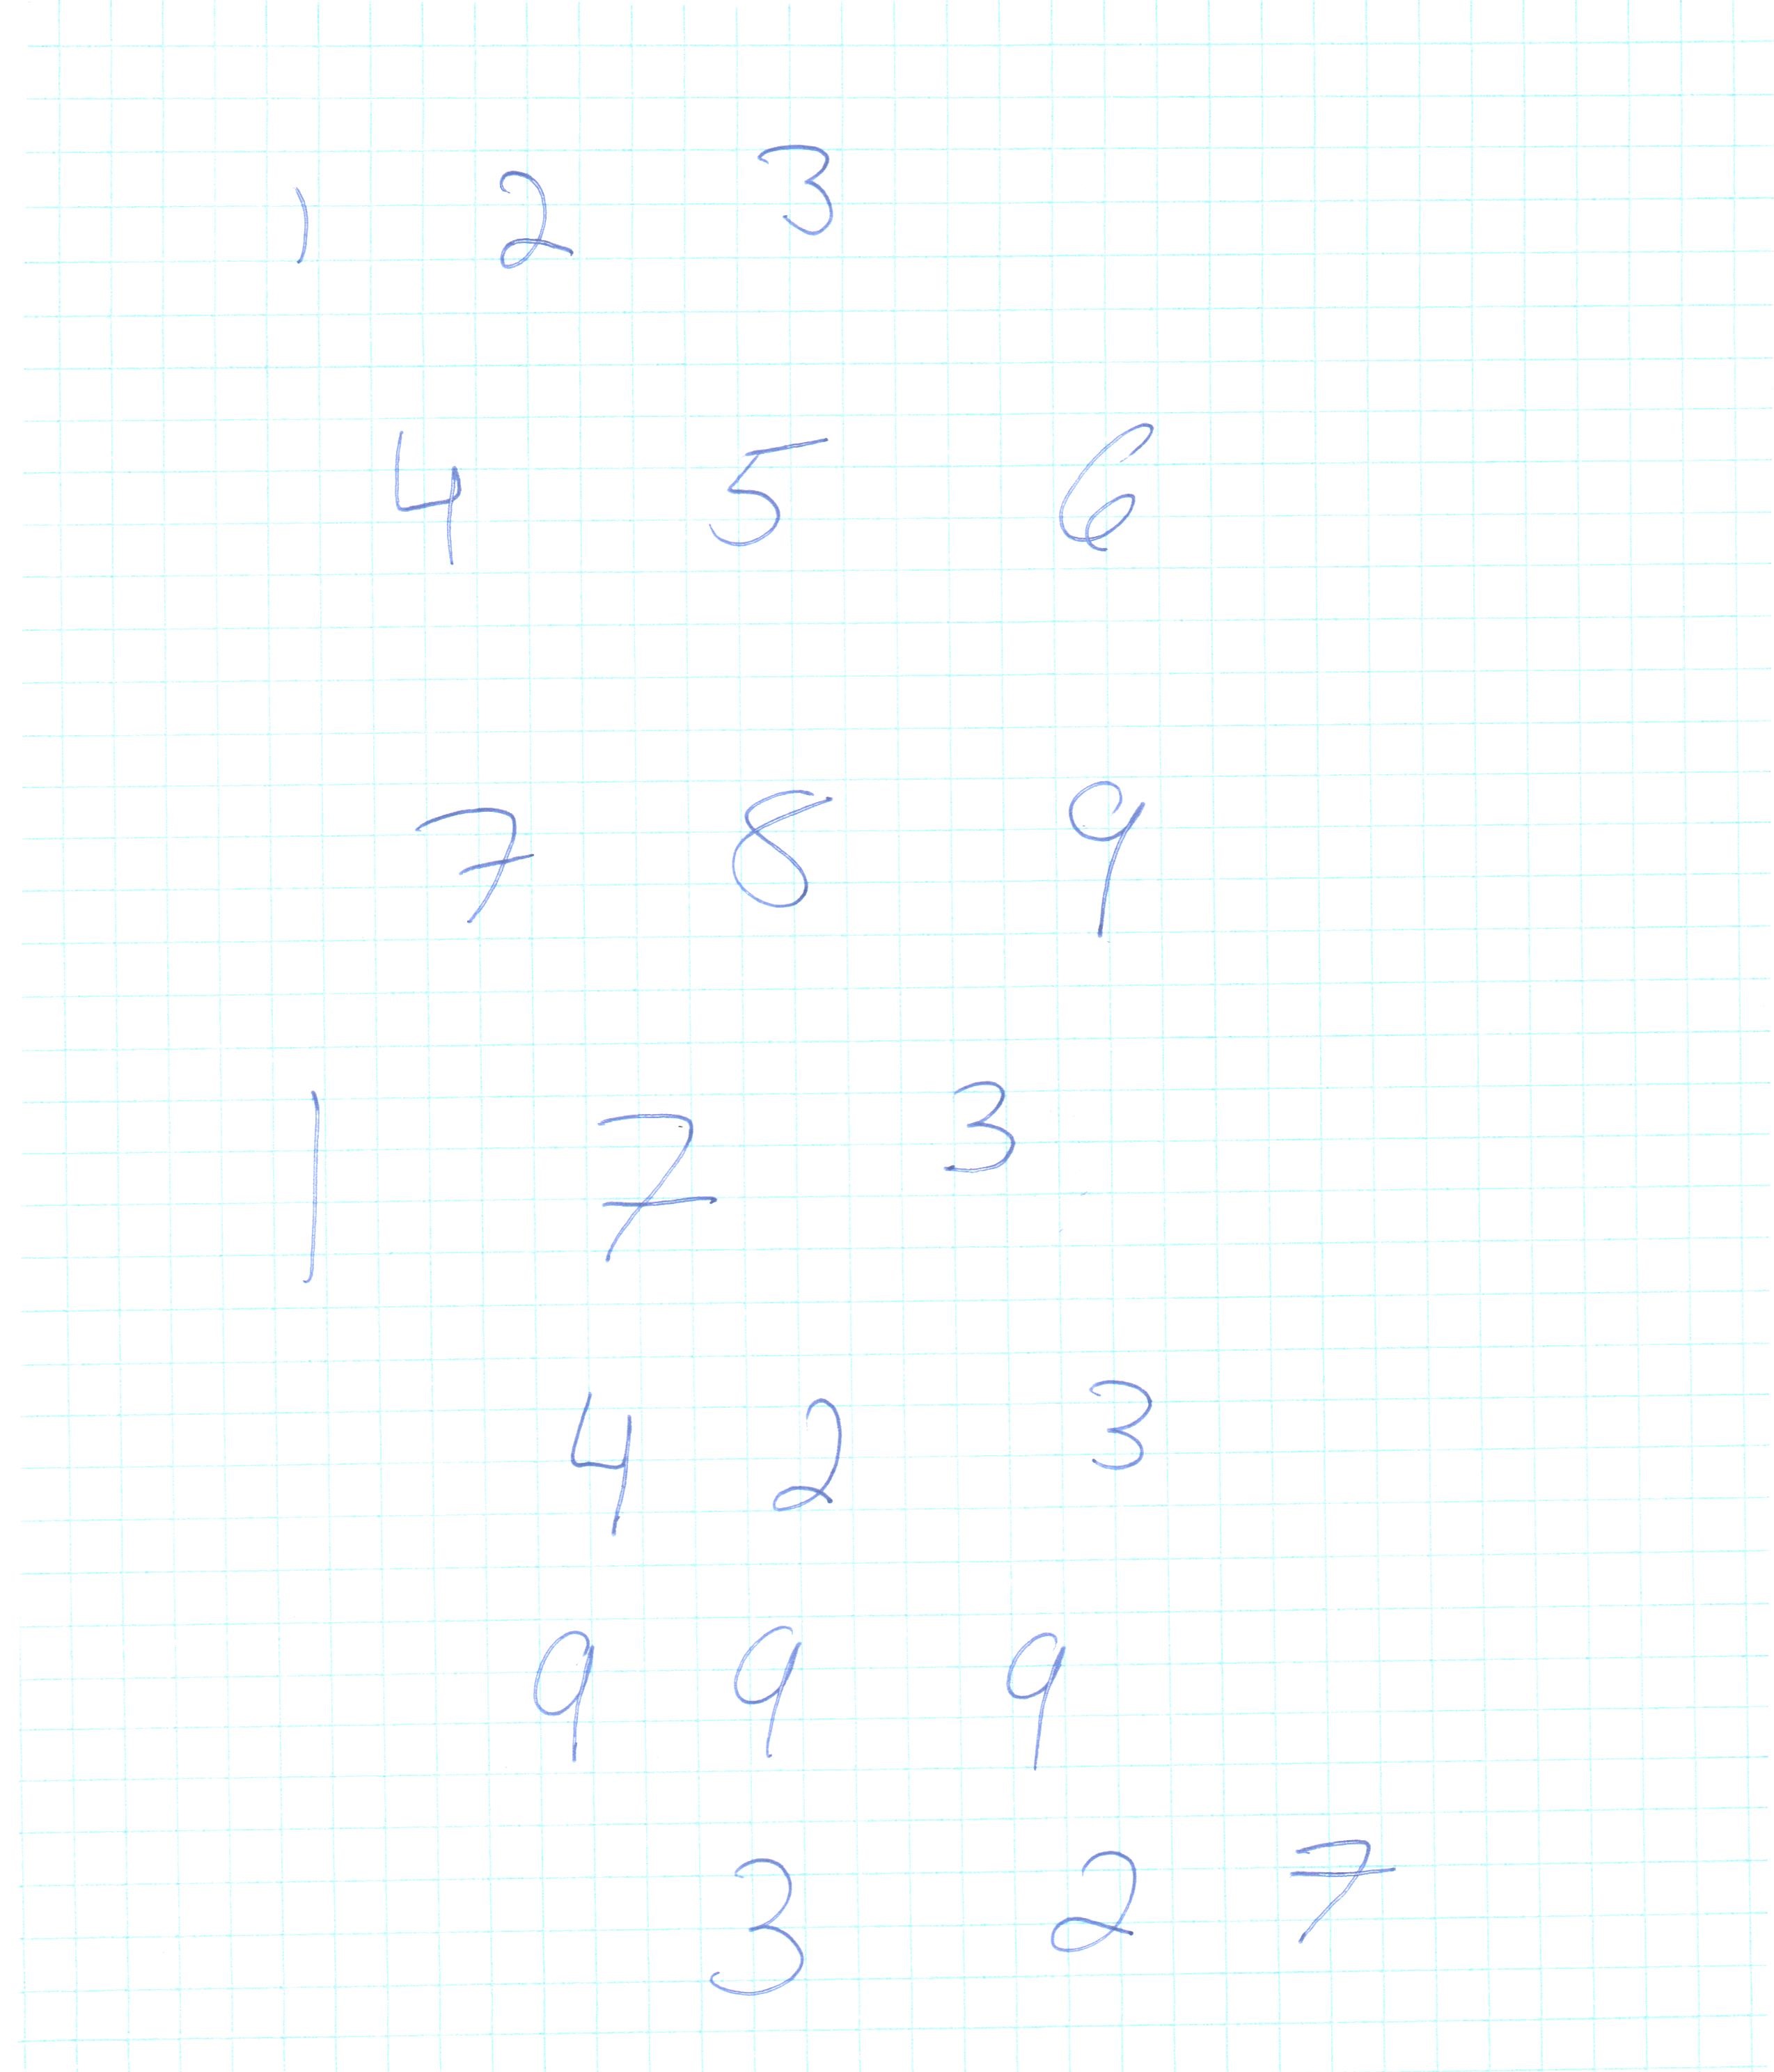 1 2 3
4 5 6
7 8 9
1 7 3
4 2 3
9 9 9
3 2 7